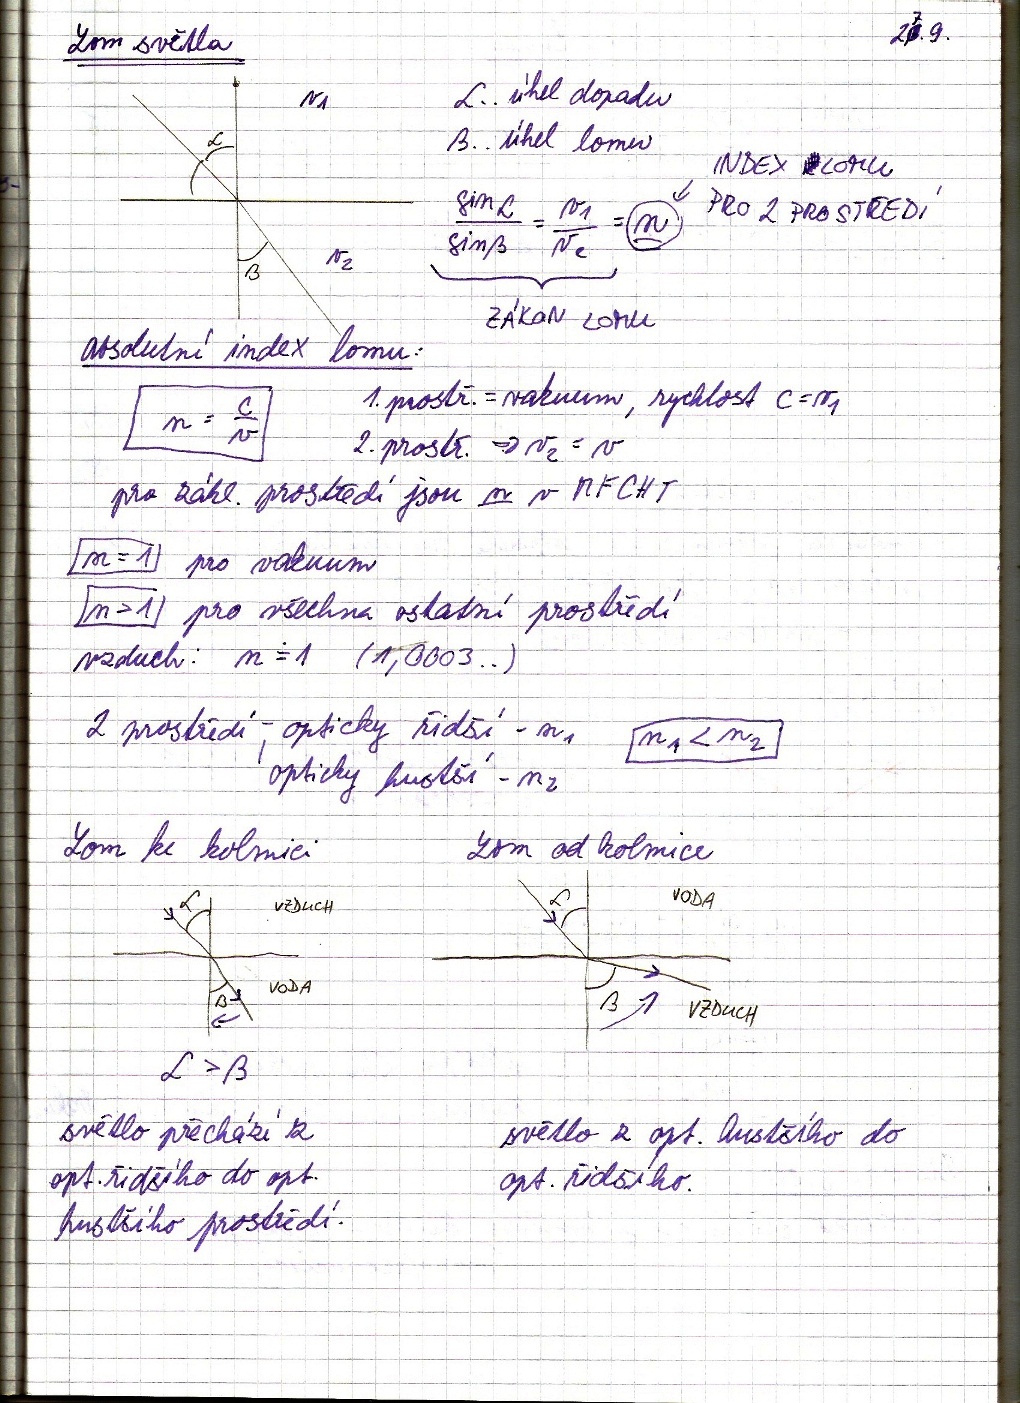 Lom světla
27.9.
v1
α
β
v2
α.. úhel dopadu
β.. úhel lomu
sinα / sinβ = v1 / v2 = n
INDEX LOMU
PRO 2 PROSTŘEDÍ
ZÁKON LOMU
absolutní index lomu:
n = c / v
1. prostř. = vakuum, rychlost c = v1
2. prostř. ⇒ v2 = v
pro zákl. prostředí jsou n v MFCHT
n = 1 pro vakuum
n > 1 pro všechna ostatní prostředí
vzduch: n ≐ 1 (1,0003..)
2 prostředí - opticky řidší - n1
n1 < n2
opticky hustší - n2
Lom ke kolmici
Lom od kolmice
α
VZDUCH
VODA
β
α
VODA
β
VZDUCH
α > β
světlo přechází z
opt. řidšího do opt.
hustšího prostředí.
světlo z opt. hustšího do
opt. řidšího.